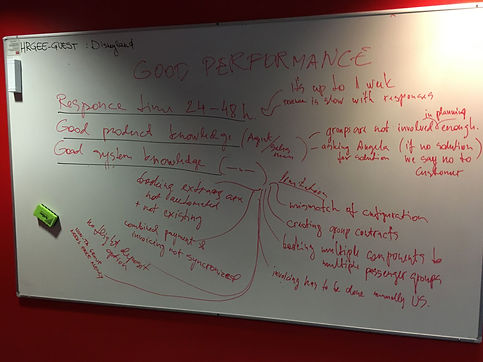 HRGEE-GUEST : Disneyland
GOOD PERFORMANCE
Responce time 24-48 h.
it's up to 1 week
is slow with responses
Good product knowledge (Agent/
in planning
groups are not involved enough.
asking Angela (if no solution
for solution we say no to
customer
Good system knowledge
booking extras are
not automated
+ not existing
combined payment &
invoicing not syncronized
deposit
option
mismatch of configuration
creating group contracts
booking multiple components to
multiple passenger groups
invoicing has to be done manually US.